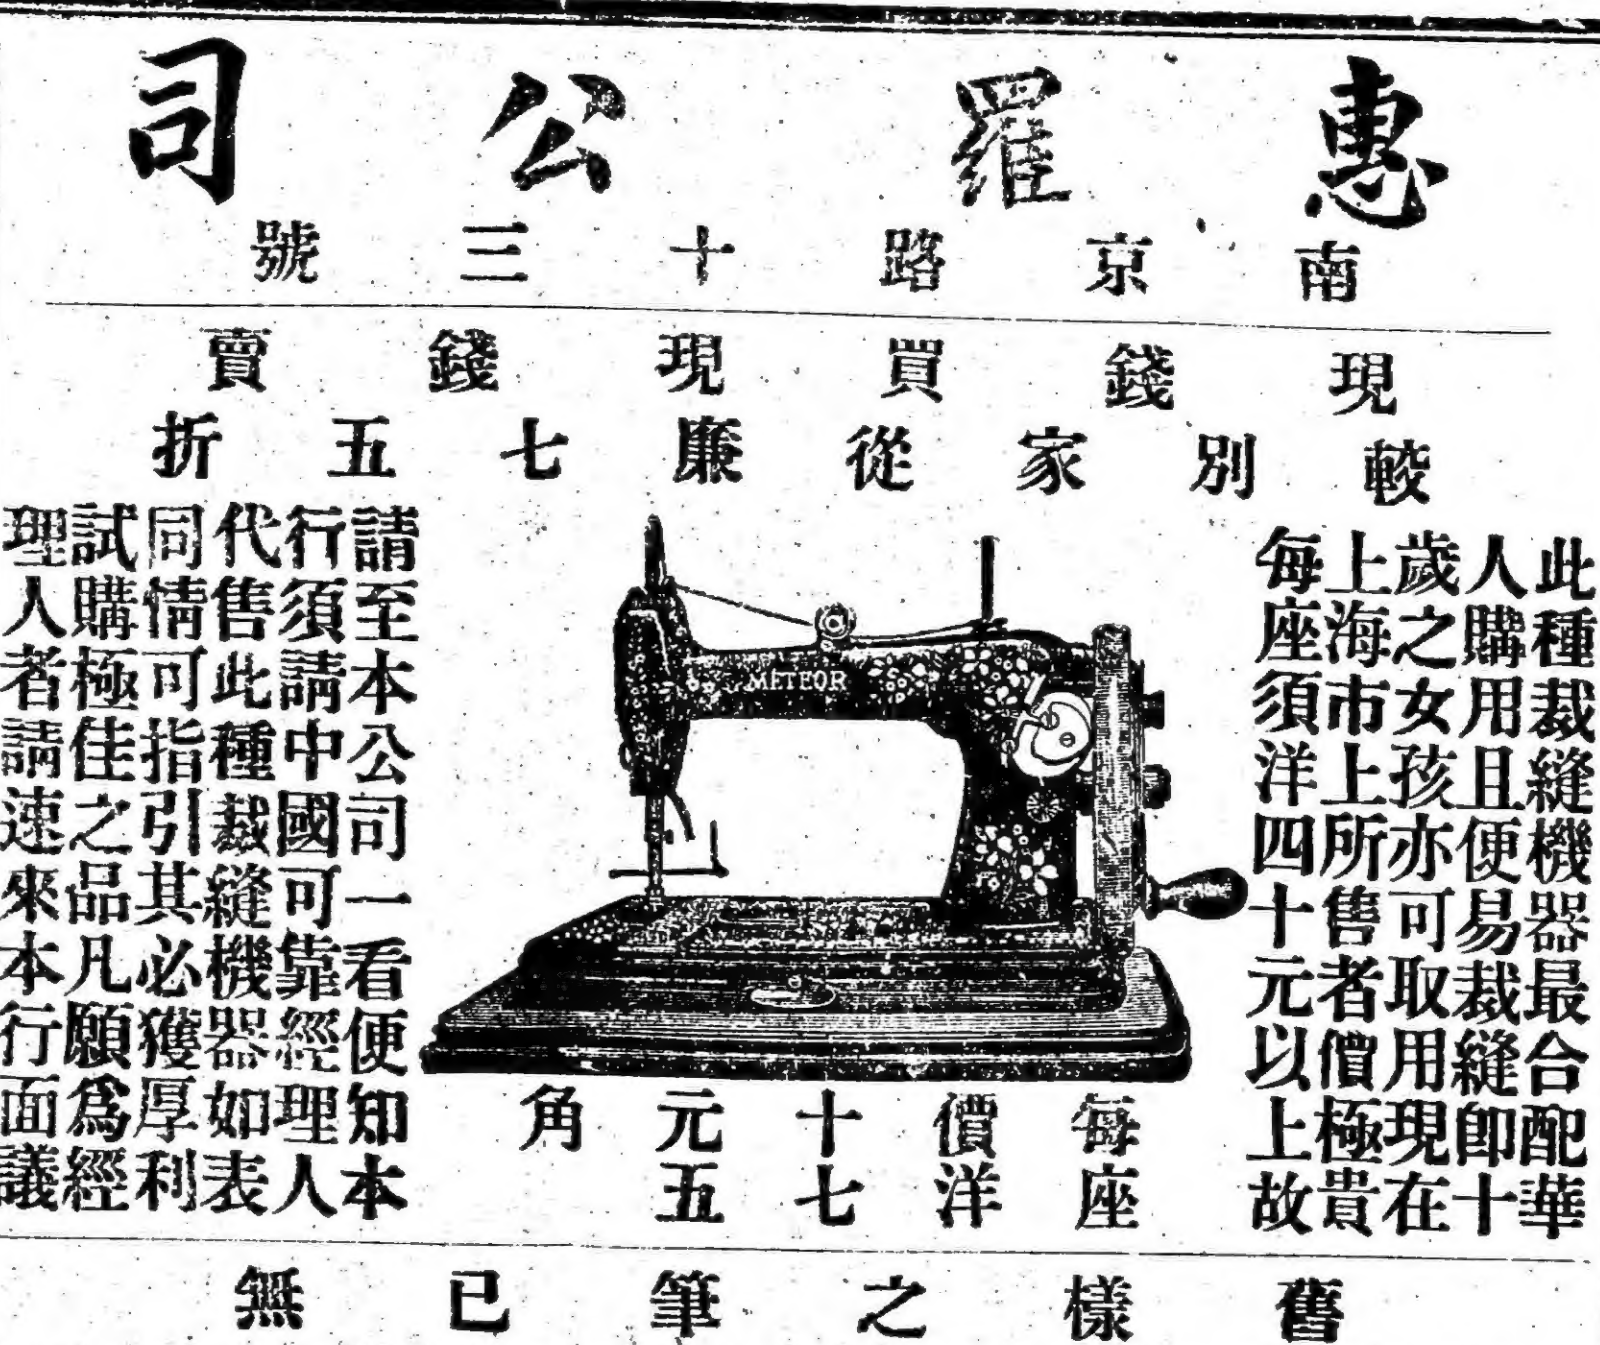 惠羅公司
南京路十三號
現錢買現錢賣
較別家從廉七五折
此種裁縫機器最合配華
人購用且便易裁縫即十
歲之女孩亦可取用現在
上海市上所售者價極貴
每座須洋四十元以上故
METEOR
每座
價洋
十七
元五
角
請至本公司一看便知本
行須請中國可靠經理人
代售此種裁縫機器如表
同情可指引其必獲厚利
試購極佳之品凡願爲經
理人者請速來本行面議
舊樣之筆已無